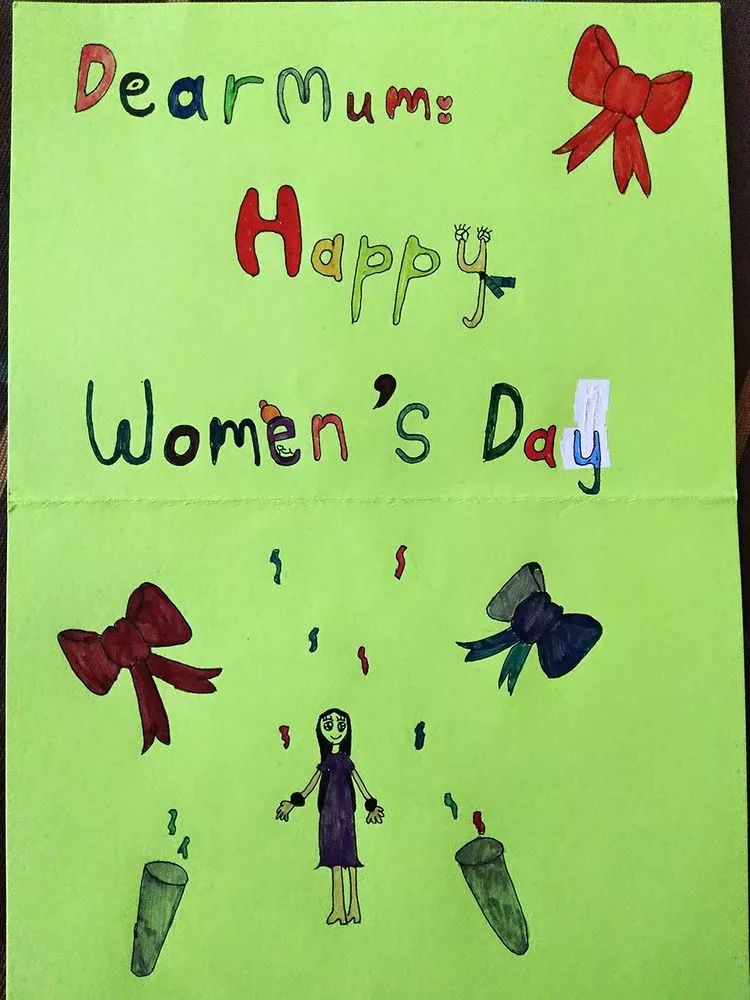 Dear Mum:
Happy
Women's Day